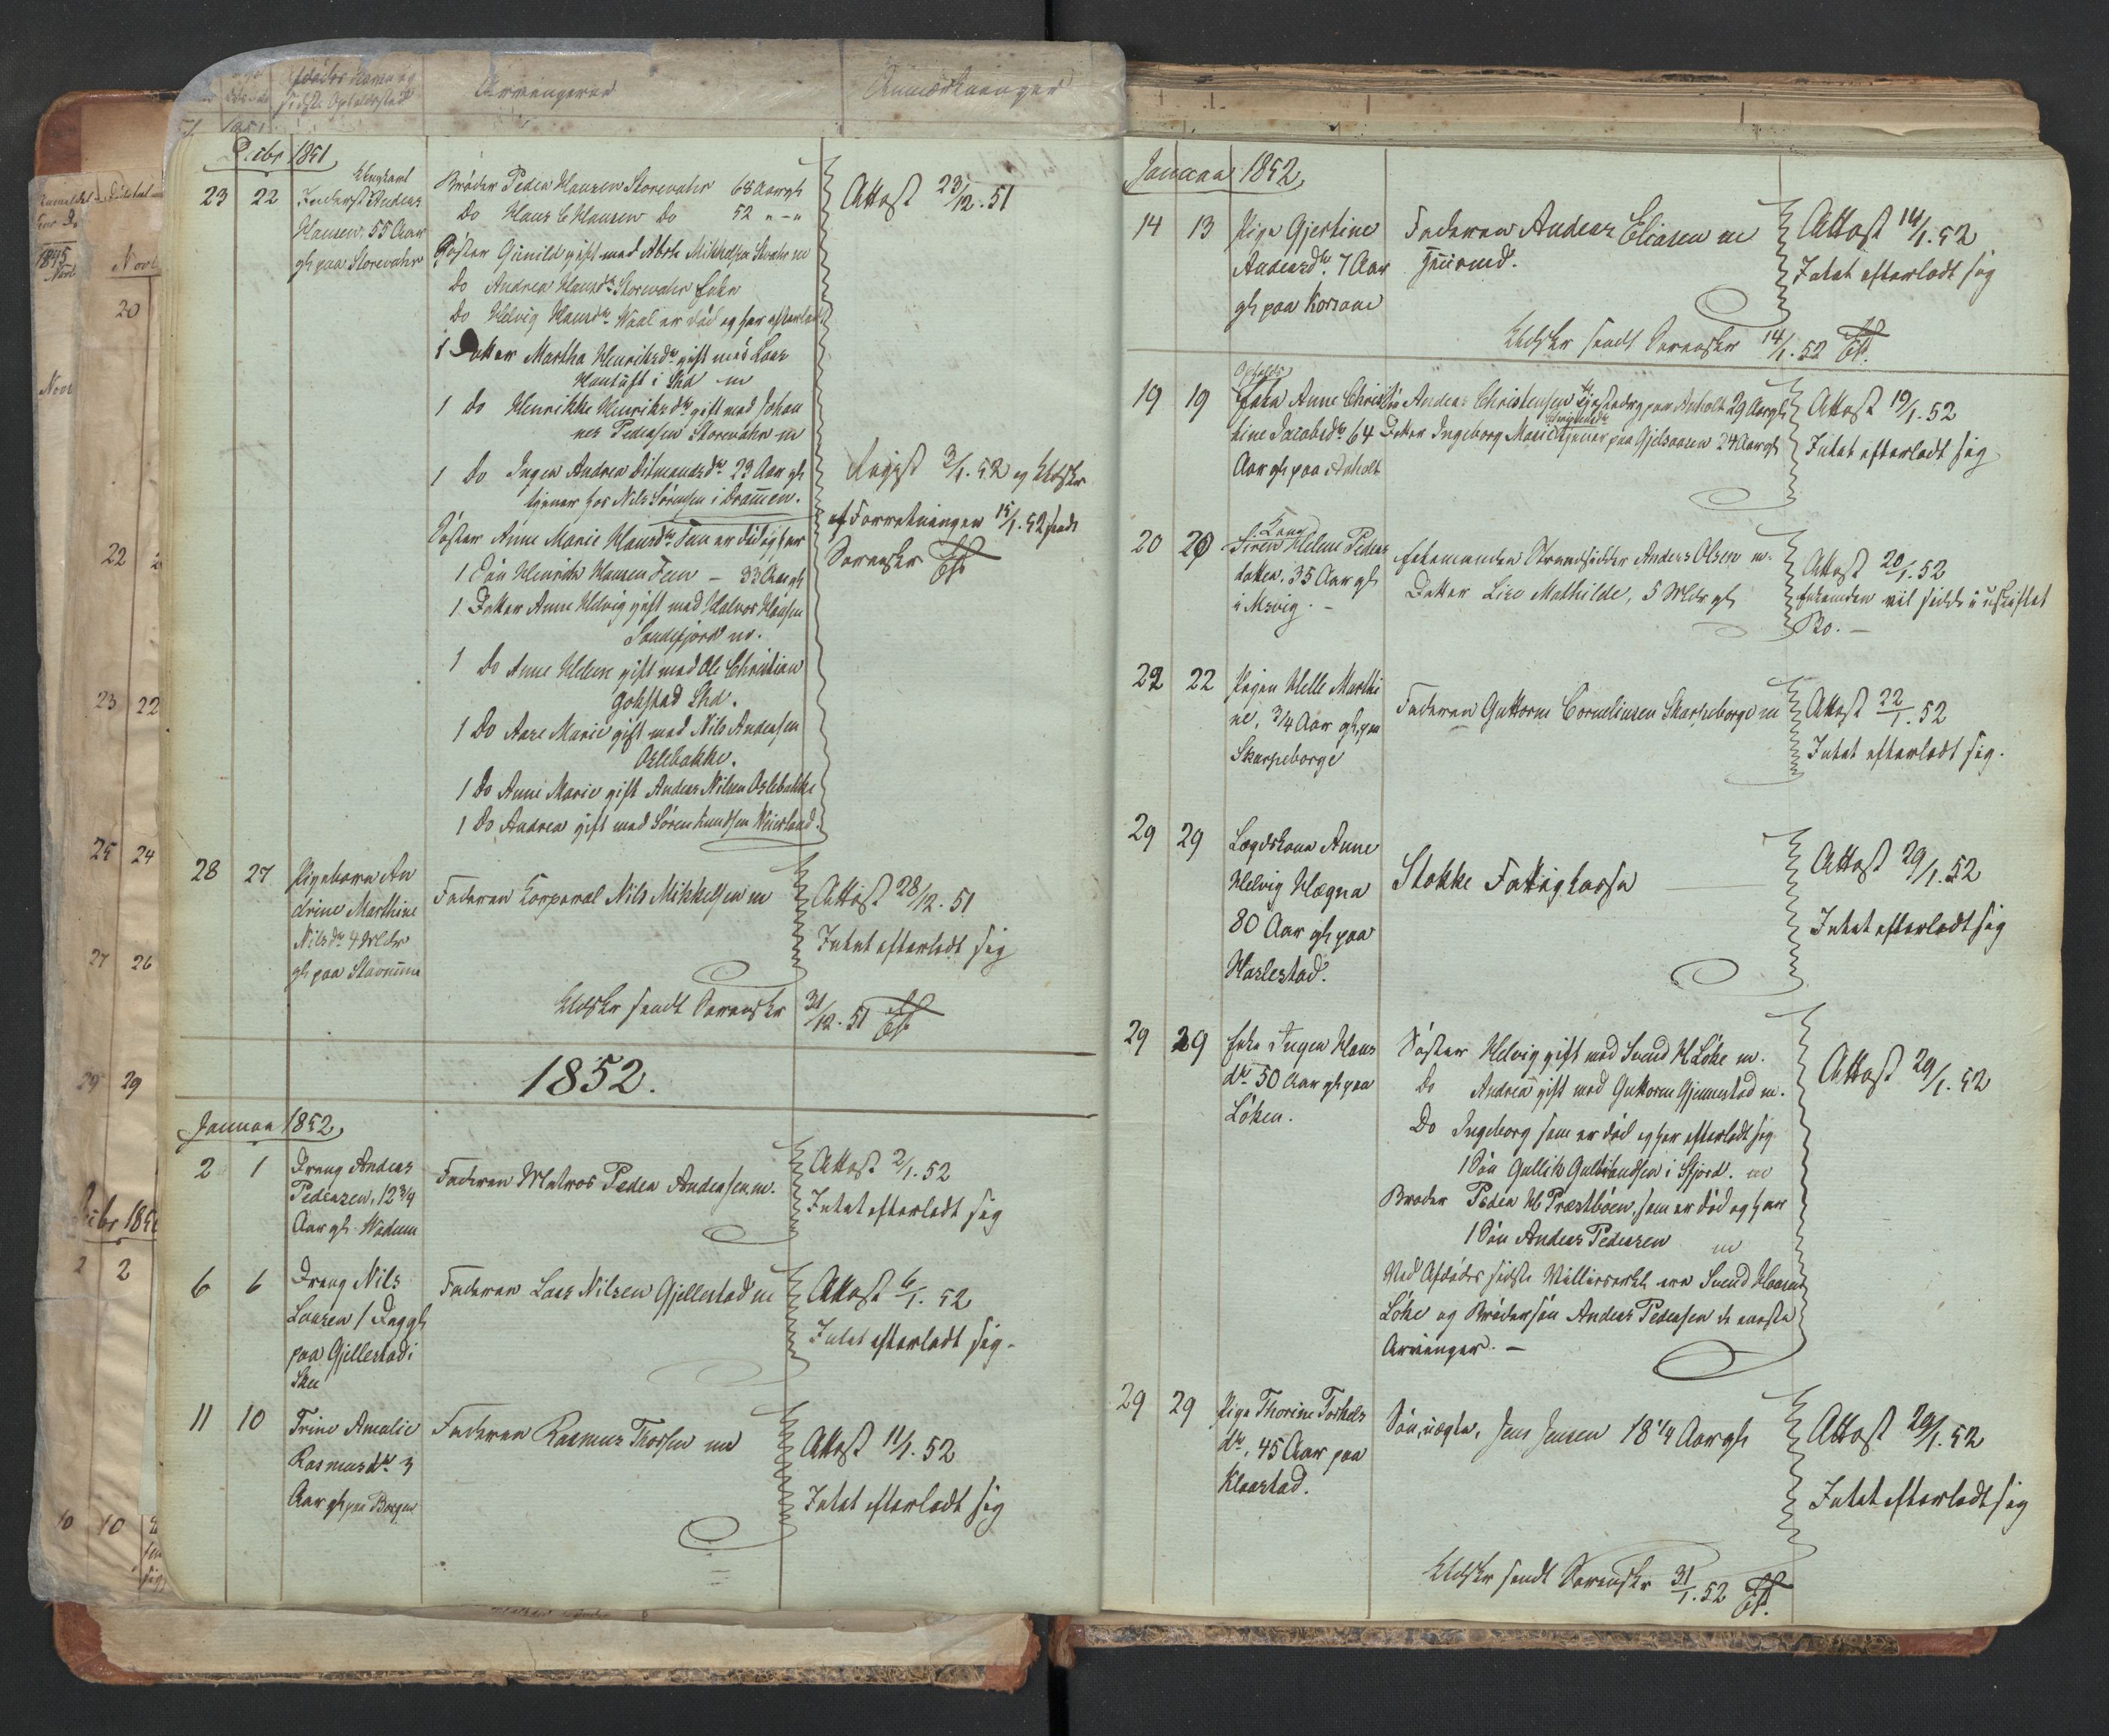 Afdødes Navn og
sidste Opholdssted
Arvingerne
Anmærkninger
Decbr 1851
23 22 Ungkarl
Inderst Andreas
Hansen 55 Aar
gl paa Storevahr
Brøder Peder Hansen Storevahr 68 Aar gl
Do Hans C Hansen Do 52 " - "
Søster Gunild gift med Abrh Mikkelsen
Do Andrea Hansdr Storevahr Enke
Do Helvig Hansdr Waal er død og har efterladt
1 Datter Martha Henriksdr gift med Lars
Hontuft i Shd m
1 Do Henrikke Henriksdr gift med Johan
nes Pedersen Storevahr m
1 Do Inger Andrea Ditmandsdr 29 Aar gl
tjener hos Nils Sørensen i Drammen.
Søster Anne Marie Hansdr Fen er død og har
1 Søn Henrich Hansen Feen - 33 Aar gl
1 Datter Anne Helvig gift med Halvor Hansen
Sandefjord m.
1 Do Anne Helene gift med Ole Christian
Gokstad Shd.
1 Do Aase Marie gift med Nils Andersen
Oslebakke.
1 Do Anne Marie gift Andreas Nilsen Oslebakke
1 Do Andrea gift med Søren Knudsen Neierland.
Attest 23/12. 51
Regist 3/1. 52 og Udskr
af Forretningen 15/1. 52 sendt
Sorenskr
28 27 Pigebarn An
drine Marthine
Nilsdr 4 Mdr
gl paa Stavnum
Faderen Korporal Nils Mikkelsen m
Attest 28/12. 51
Intet efterladt sig
Udskr sendt Sorenskr 31/12. 51
1852.
Januar 1852,
2 1 Dreng Andreas
Pedersen, 12 3/4
Aar gl. Wadum
Faderen Matros Peder Andersen m.
Attest 2/1. 52
Intet efterladt sig
6 6 Dreng Nils
Larsen 1 Dag gl
paa Gjellestad i
Skee
Faderen Lars Nilsen Gjellestad m
Attest 6/1. 52
Intet efterladt sig.
11 10 Trine Amalie
Rasmusdr 3
Aar gl paa Borgen
Faderen Rasmus Thorsen m
Attest 11/1. 52
Intet efterladt sig
Januar 1852,
14 13 Pige Gjertine
Andersdr. 7 Aar
gl paa Korsone
Faderen Andreas Eliasen m
Attest 14/1. 52
Intet efterladt sig
Udskr sendt Sorenskr 14/1. 52
19 19 Opholds
Enke Anne Chris
tine Jacobsdr 64
Aar gl paa Anholt
Søn Andreas Christensen paa Anholt 29 Aar gl
Datter Ingeborg Marie tjener paa Gjelsaasen 24 Aar gl
Attest 19/1. 52
Intet efterladt sig
20 20 Kone
Siren Helene Peders
datter. 35 Aar gl
i Mevig. -
Enkemanden Strandsidder Anders Olsen m.
Datter Lise Mathilde, 5 Mdr gl
Attest 20/1. 52
Enkemden vil sidde i uskiftet
Bo. -
22 22 Pigen Helle Marthi
ne, 3/4 Aar gl, paa
Skarpeborge
Faderen Guttorm Corneliusen Skarpeborge m
Attest 22/1. 52
Intet efterladt sig.
29 29 Lægdskone Anne
Helvig Hægna
80 Aar gl paa
Haslestad.
Stokke Fattigkasse
Attest 29/1. 52
Intet efterladt sig
29 29 Enke Inger Hans
dr 50 Aar gl paa
Løken.
Søster Helvig gift med Svend H. Løke m.
Do Andrea gift med Guttorm Gjennestad m.
Do Ingeborg som er død og har efterladt sig
1 Søn Gullik Gulbrandsen i Sfjord. m
Broder Peder H Præstbøen, som er død og har
1 Søn Anders Pedersen m
Ved Afdødes sidste Villieserkl ere Svend Hansen
Løke og Brodersøn Anders Pedersen de eneste
Arvinger. -
Attest 29/1. 52
29 29 Pige Thorine Torkels
dr, 45 Aar paa
Klaastad.
Søn, uægte, Jens Jensen 18 1/4 Aar gl
Attest 29/1. 52
Intet efterladt sig
Udskr sendt Sorenskr 31/1. 52